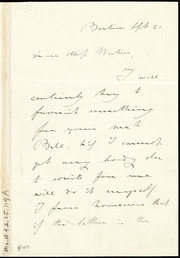 Boston Sept 21.
Dear Miss Weston,
I will
certainly try to
furnish something
for your next
Bell; if I cannot
get any body else
to write for me
will do it myself.
I fear however that
if the letter in the